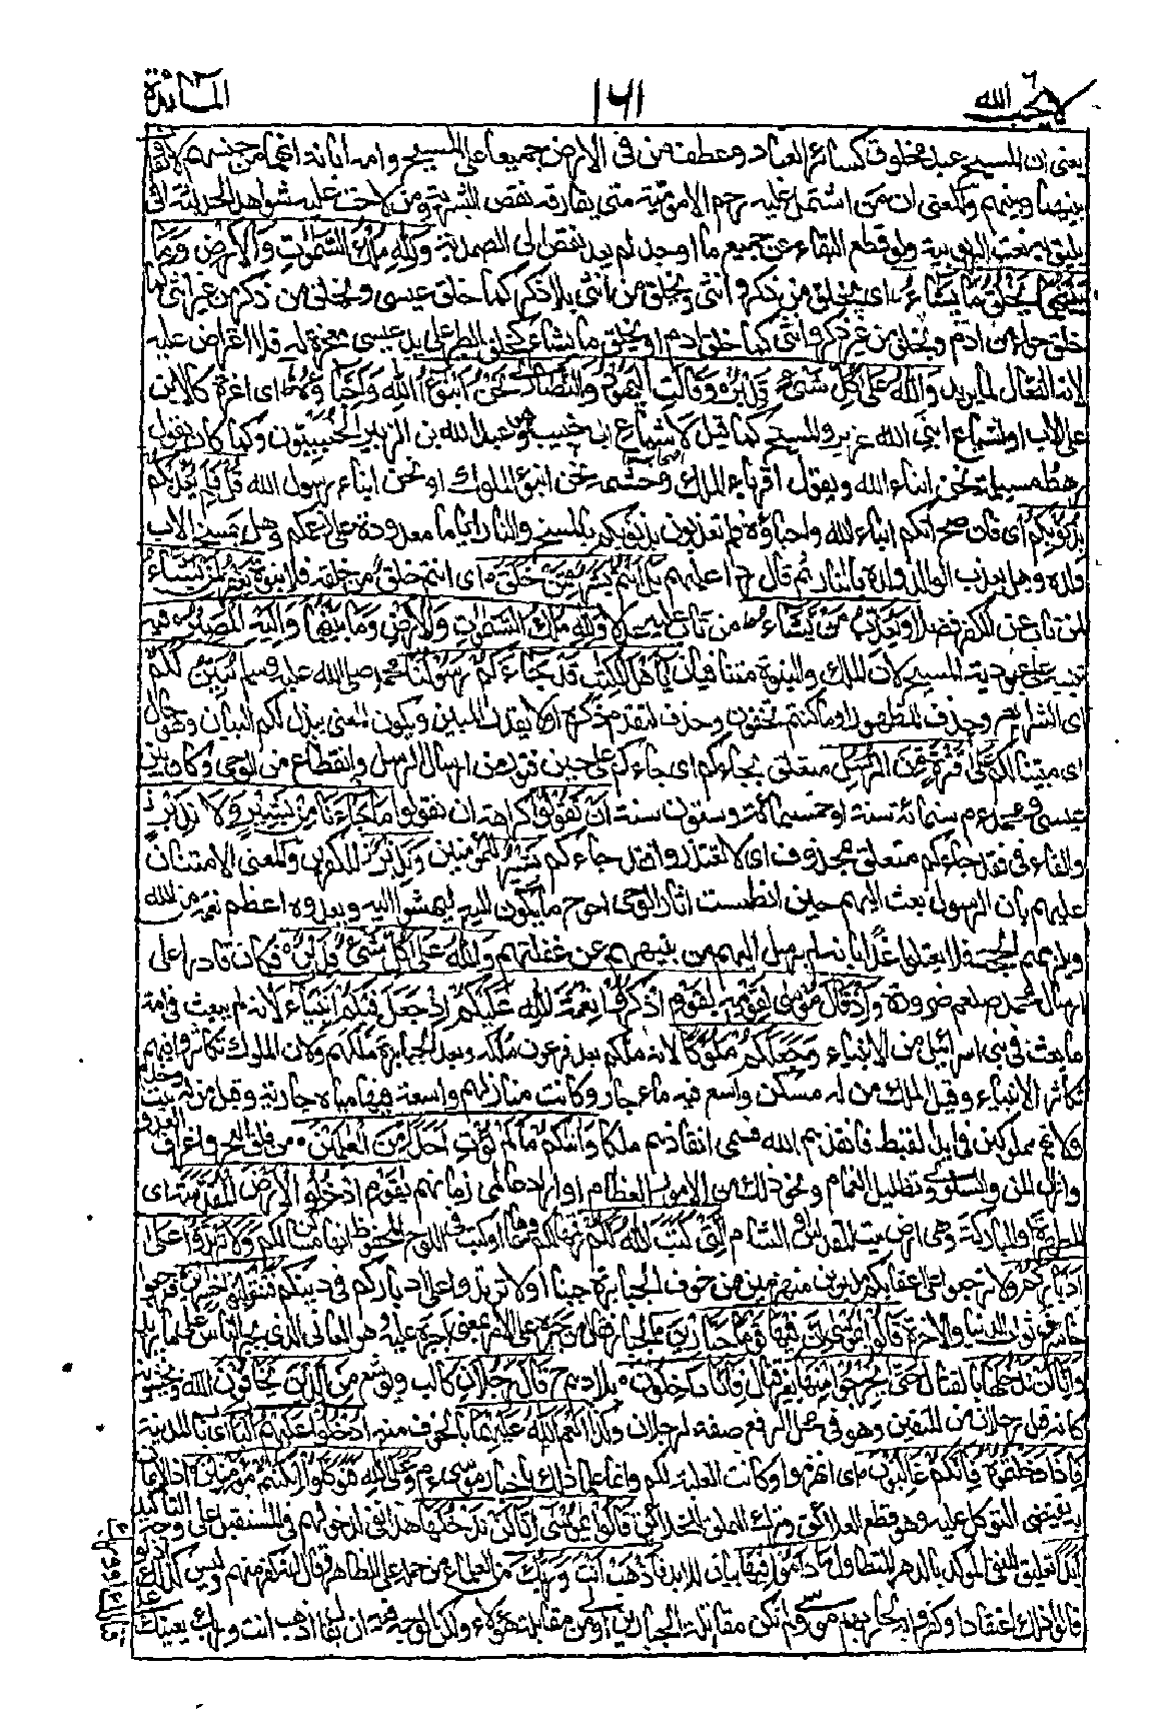 لا يحب الله ٦
١٦١
المائدة
يعنى ان المسيح عبد مخلوق كسائر العباد وعطف من فى الارض جميعا على المسيح وامه ابانة انهما من جنسهم لا تفاوت
بينهما وبينهم والمعنى ان من اشتمل عليه رحم الامومية متى يفارقه نقص البشرية ومن لاحت عليه شواهد الحدثية انى
يليق به نعت الربوبية ولو قطع البقاء عن جميع ما اوجد لم يعد نقص الى الصمدية وَلِلّٰهِ مُلْكُ السَّمٰوٰتِ وَالْاَرْضِ وَمَا
بَيْنَهُمَا يَخْلُقُ مَا يَشَاءُ اى يخلق من ذكر وانثى ويخلق من انثى بلا ذكر كما خلق عيسى ويخلق من ذكر من غير انثى كما
خلق حواء من ادم ويخلق من غير ذكر وانثى كما خلق ادم او يخلق ما يشاء كخلق الطير على يد عيسى معجزة له فلا اعتراض عليه
لانه الفعال لما يريد وَاللّٰهُ عَلٰى كُلِّ شَىْءٍ قَدِيْرٌ وَقَالَتِ الْيَهُوْدُ وَالنَّصَارٰى نَحْنُ اَبْنٰٓؤُا اللّٰهِ وَاَحِبَّاؤُهُ اى اعزة كالابن
على الاب او اشياع ابنى الله عزير والمسيح كما قيل لاشياع ابى خبيب وهو عبد الله بن الزبير الخبيبيون وكما كان يقول
رهط مسيلمة نحن ابناء الله ويقول اقرباء الملك وحشمه نحن ابناء الملوك او نحن ابناء رسول الله قُلْ فَلِمَ يُعَذِّبُكُمْ
بِذُنُوْبِكُمْ اى فان صح انكم ابناء الله واحباؤه فلم تعذبون بذنوبكم بالمسخ والنار اياما معدودة على زعمكم وهل يمسخ الاب
ولده وهل يعذب الوالد ولده بالنار ثم قال ردا عليهم بَلْ اَنْتُمْ بَشَرٌ مِمَّنْ خَلَقَ اى انتم خلق من خلقه لا بنوه يَغْفِرُ لِمَنْ يَشَاءُ
لمن تاب عن الكفر فضلا وَيُعَذِّبُ مَنْ يَشَاءُ من مات عليه عدلا وَلِلّٰهِ مُلْكُ السَّمٰوٰتِ وَالْاَرْضِ وَمَا بَيْنَهُمَا وَاِلَيْهِ الْمَصِيْرُ فيه
تنبيه على عبودية المسيح لان الملك والبنوة متنافيان يَااَهْلَ الْكِتٰبِ قَدْ جَاءَكُمْ رَسُوْلُنَا محمد صلى الله عليه وسلم يُبَيِّنُ لَكُمْ
اى الشرائع وحذف لظهوره او ما كنتم تخفون وحذف لتقدم ذكره او لا يقدر المبين ويكون المعنى يبذل لكم البيان وهو حال
اى مبينا لكم عَلٰى فَتْرَةٍ مِنَ الرُّسُلِ متعلق بجاءكم اى جاءكم على حين فتور من ارسال الرسل وانقطاع من الوحى وكان بين
عيسى ومحمد عم ستمائة سنة او خمسمائة وستون سنة اَنْ تَقُوْلُوْا كراهة ان تقولوا مَا جَاءَنَا مِنْ بَشِيْرٍ وَلَا نَذِيْرٍ
والفاء فى فقد جاءكم متعلق بمحذوف اى لا تعتذروا فقد جاءكم بَشِيْرٌ للمؤمنين وَنَذِيْرٌ للكفرين والمعنى الامتنان
عليهم بان الرسول بعث اليهم حين انطمست اثار الوحى احوج ما يكون اليه ليهشوا اليه ويعدوه اعظم نعمة من الله
ويلزمهم الحجة فلا يعتلوا غدا بانه لم يرسل اليهم من ينبههم عن غفلتهم وَاللّٰهُ عَلٰى كُلِّ شَىْءٍ قَدِيْرٌ فكان قادرا على
ارسال محمد صلعم ضرورة وَاِذْ قَالَ مُوْسٰى لِقَوْمِهِ يٰقَوْمِ اذْكُرُوْا نِعْمَةَ اللّٰهِ عَلَيْكُمْ اِذْ جَعَلَ فِيْكُمْ اَنْبِيَاءَ لانه لم يبعث فى امة
ما بعث فى بنى اسرائيل من الانبياء وَجَعَلَكُمْ مُلُوْكًا لانه ملكهم بعد فرعون ملكه وبعد الجبابرة ملكهم ولان الملوك تكاثروا فيهم
تكاثر الانبياء وقيل الملك من له مسكن واسع فيه ماء جار وكانت منازلهم واسعة فيها مياه جارية وقيل من له بيت وخدم
ولانهم مملوكين فى ايدى القبط فانقذهم الله فسمى انقاذهم ملكا وَاٰتٰكُمْ مَا لَمْ يُؤْتِ اَحَدًا مِنَ الْعٰلَمِيْنَ من فلق البحر واغراق العدو
وانزال المن والسلوى وتظليل الغمام ونحو ذلك من الامور العظام او اراد عالمى زمانهم يٰقَوْمِ ادْخُلُوا الْاَرْضَ الْمُقَدَّسَةَ اى
المطهرة او المباركة وهى ارض بيت المقدس او الشام الَّتِىْ كَتَبَ اللّٰهُ لَكُمْ قسمها لكم او سماها او كتب فى اللوح المحفوظ انها مساكن لكم وَلَا تَرْتَدُّوْا عَلٰى
اَدْبَارِكُمْ ولا ترجعوا على اعقابكم مدبرين منهزمين من خوف الجبابرة جبنا او لا ترتدوا على ادباركم فى دينكم فَتَنْقَلِبُوْا خٰسِرِيْنَ فترجعوا
خاسرين ثواب الدنيا والاخرة قَالُوْا يٰمُوْسٰى اِنَّ فِيْهَا قَوْمًا جَبَّارِيْنَ الجبار فعال من جبره على الامر بمعنى اجبره عليه وهو العاتى الذى يجبر الناس على ما يريد
وَاِنَّا لَنْ نَدْخُلَهَا بالقتال حَتّٰى يَخْرُجُوْا مِنْهَا بغير قتال فَاِنَّا دَاخِلُوْنَ بلادهم ح قَالَ رَجُلَانِ كالب ويوشع مِنَ الَّذِيْنَ يَخَافُوْنَ الله ويخشونه
كانه قيل رجلان من المتقين وهو فى محل الرفع صفة لرجلان وكذا اَنْعَمَ اللّٰهُ عَلَيْهِمَا بالخوف منه ادْخُلُوْا عَلَيْهِمُ الْبَابَ اى باب المدينة
فَاِذَا دَخَلْتُمُوْهُ فَاِنَّكُمْ غَالِبُوْنَ اى انهزموا وكانت الغلبة لكم وانما علما ذلك باخبار موسى عم وَعَلَى اللّٰهِ فَتَوَكَّلُوْا اِنْ كُنْتُمْ مُؤْمِنِيْنَ اذ الايمان
به يقتضى التوكل عليه وهو قطع العلائق وترك التملق للخلائق قَالُوْا يٰمُوْسٰى اِنَّا لَنْ نَدْخُلَهَا هذا نفى لدخولهم فى المستقبل على وجه التاكيد
اَبَدًا تعليق للنفى المؤكد بالدهر المتطاول مَا دَامُوْا فِيْهَا بيان للابد فَاذْهَبْ اَنْتَ وَرَبُّكَ من العلماء من حمله على الظاهر وقال انه كفر منهم وليس كذلك
قالوا ذلك اعتقادا وكفروا به لحاربهم موسى ولم تكن مقاتلة الجبارين اولى من مقاتلة هؤلاء ولكن الوجه فيه ان يقال اذهب انت وربك يعينك